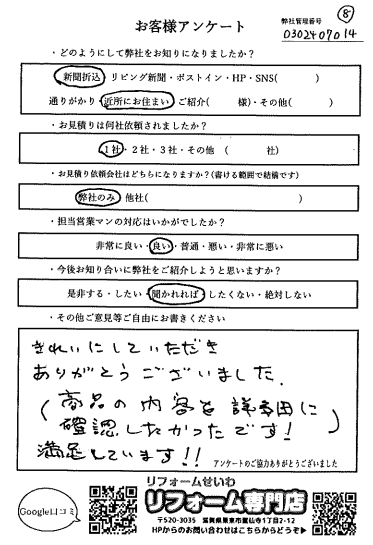 お客様アンケート
弊社管理番号
⑧
0302407014
・どのようにして弊社をお知りになりましたか？
新聞折込 リビング新聞・ポストイン・HP・SNS(　　　)
通りがかり・近所にお住まい・ご紹介(　　様)・その他(　　　)
・お見積りは何社依頼されましたか？
1社・2社・3社・その他 (　　　社)
・お見積り依頼会社はどちらになりますか？(書ける範囲で結構です)
弊社のみ・他社(　　　)
・担当営業マンの対応はいかがでしたか？
非常に良い・良い・普通・悪い・非常に悪い
・今後お知り合いに弊社をご紹介しようと思いますか？
是非する・したい・聞かれれば・したくない・絶対しない
・その他ご意見等ご自由にお書きください
きれいにしていただき
ありがとうございました.
(商品の内容を詳細に
確認したかったです!)
満足しています!!
アンケートのご協力ありがとうございました
Google口コミ
リフォームせいわ
リフォーム専門店
〒520-3035 滋賀県栗東市霊仙寺1丁目2-12
HPからのお問い合わせはこちらからどうぞ▶